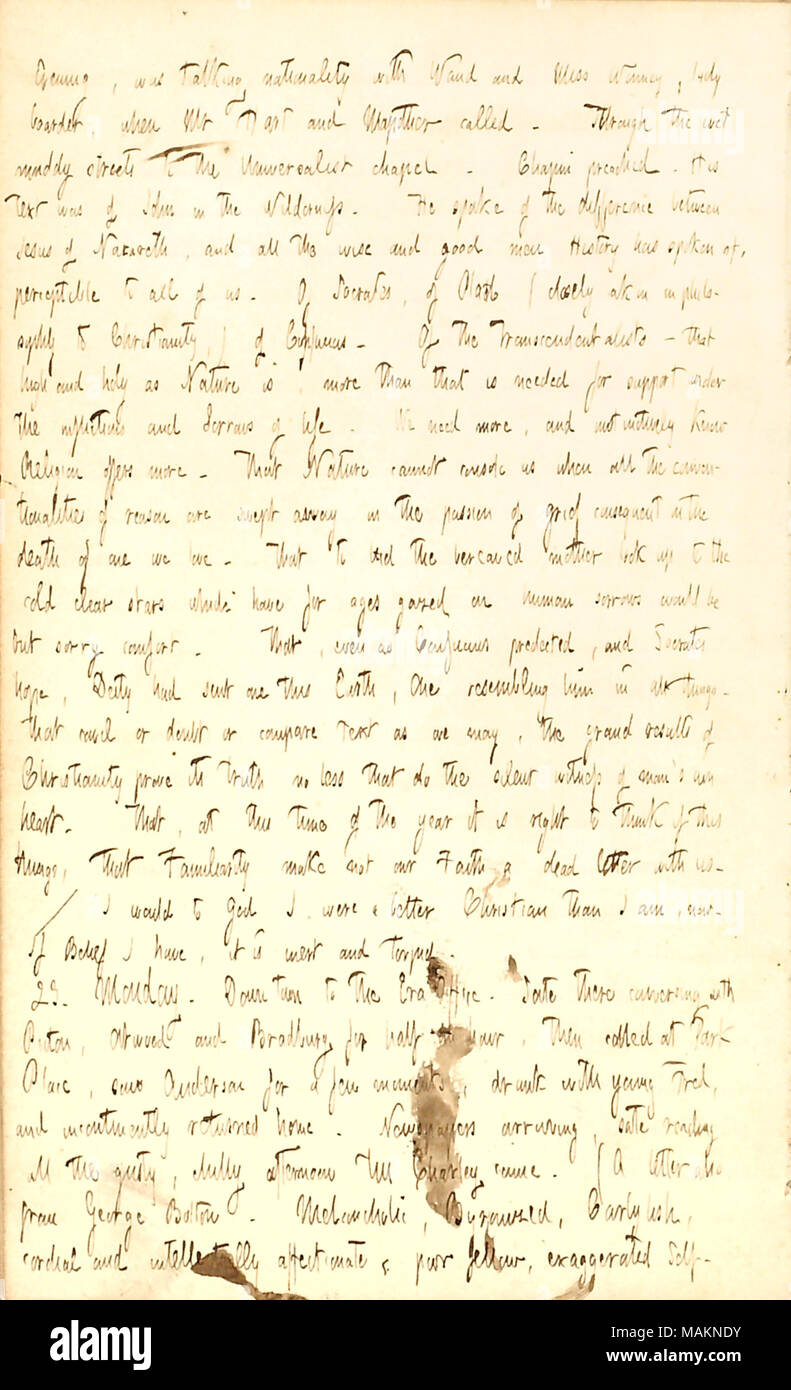 Evening, was talking nationality with Waud and Miss Winney, lady
boarder, when Mr Dart and Mapother called. Through the wet
muddy streets to the Universalist chapel. Chapin preached. His
text was of John in the Wilderness. He spoke of the difference between
Jesus of Nazareth, and all the wise and good men History has spoken of,
perceptible to all of us. Of Socrates, of Plato (closely akin in philo-
sophy to Christianity,) of Confucius. Of the Transcendentalists – that
high and holy as Nature is, more than that is needed for support under
the afflictions and Sorrows of life. We need more, and intuitively know
Religion offers more. That Nature cannot console us when all the conven-
tionalities of reason are swept away in the passion of grief consequent in the
death of one we love. That to bid the bereaved mother look up to the
cold clear stars which have for ages gazed on human sorrows would be
but sorry comfort. That, even as Confucius predicted, and Socrates
hope, Deity had sent one this Earth, One resembling him in all things.
That cavil or doubt or compare text as we may, the grand results of
Christianity prove its truth no less that do the silent witness of man's own
heart. That, at this time of the year it is right to think of this
things, that Familiarity make not our Faith a dead letter with us.
/ I would to God I were a better Christian than I am, now.
If Belief I have, it is inert and torpid.
23. Monday. Down town to the Era Office. Sate there conversing with
Picton, Atwood and Bradbury for half an hour, then called at Park
Place, saw Anderson for a few moments, drank with young Fred,
and incontinently returned home. Newspapers arriving, sate reading
all the gusty, chilly afternoon till Charley came. (A letter also
from George Bolton. Melancholic, Byronized, Carlylish,
cordial and intellectually affectionate; poor fellow, exaggerated Self-
alamy
Image ID: MAKNDY
www.alamy.com